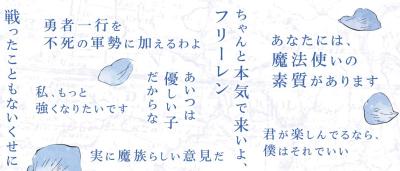 ちゃんと本気で来いよ、
フリーレン
あなたには、
魔法使いの
素質があります
君が楽しんでるなら、
僕はそれでいい
勇者一行を
不死の軍勢に加えるわよ
あいつは
優しい子
だからな
私、もっと
強くなりたいです
実に魔族らしい意見だ
戦ったこともないくせに